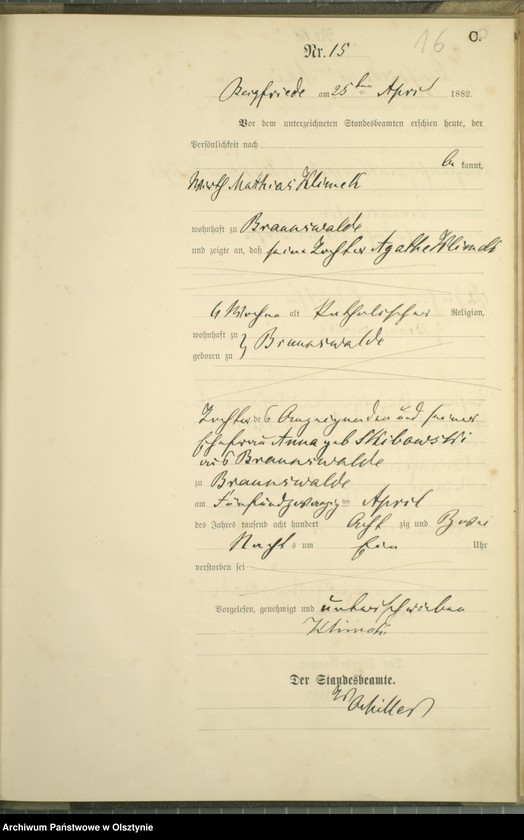 16 C.
Nr. 15
Bergfriede am 25ten April 1882.
Vor dem unterzeichneten Standesbeamten erschien heute, der
Persönlichkeit nach
be kannt,
Wirth Mathias Klimek
wohnhaft zu Braunswalde
und zeigte an, daß seine Tochter Agathe Klimek
4 Wochen alt katholischer Religion,
wohnhaft zu
geboren zu } Braunswalde
Tochter des Anzeigenden und seiner
Ehefrau Anna geb Skibowski
aus Braunswalde
zu Braunswalde
am Fünfundzwanzigsten April
des Jahres tausend acht hundert Acht zig und Zwei
Nachts um Ein Uhr
verstorben sei
Vorgelesen, genehmigt und unterschrieben
Klimek
Der Standesbeamte.
Schiller
Archiwum Państwowe w Olsztynie